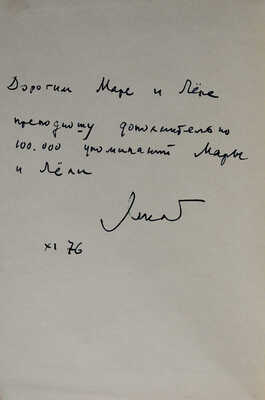 Дорогим Маре и Лёне
преподношу дополнительно
100.000 упоминаний Мары
и Лёли
XI 76